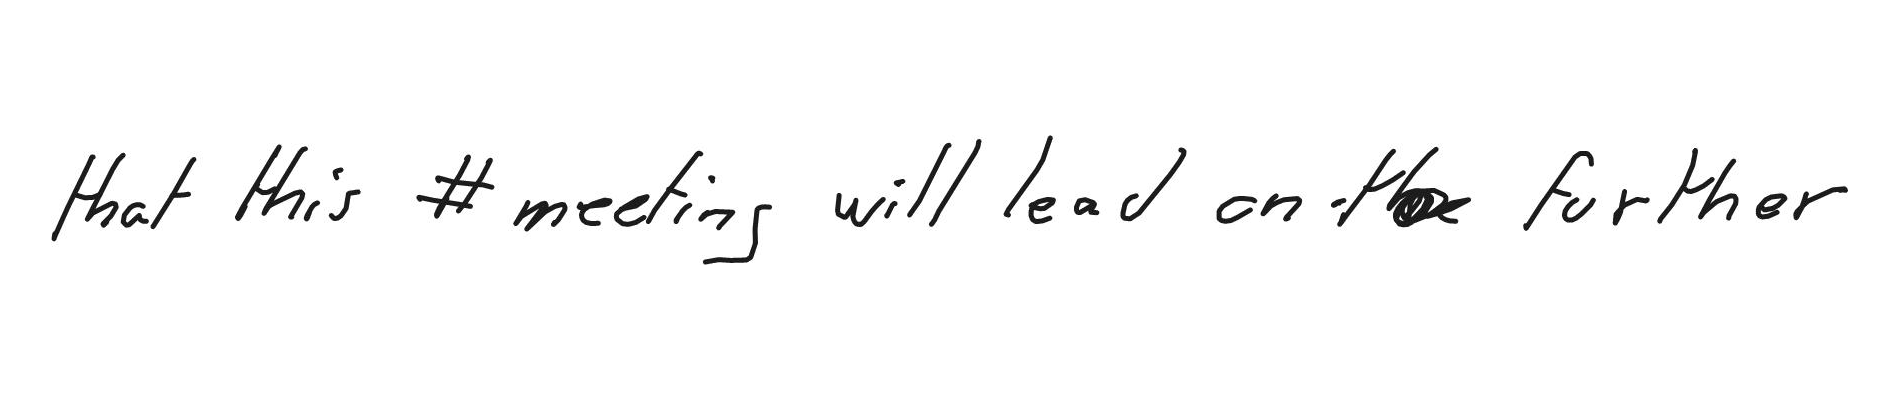 that this # meeting will lead on the further